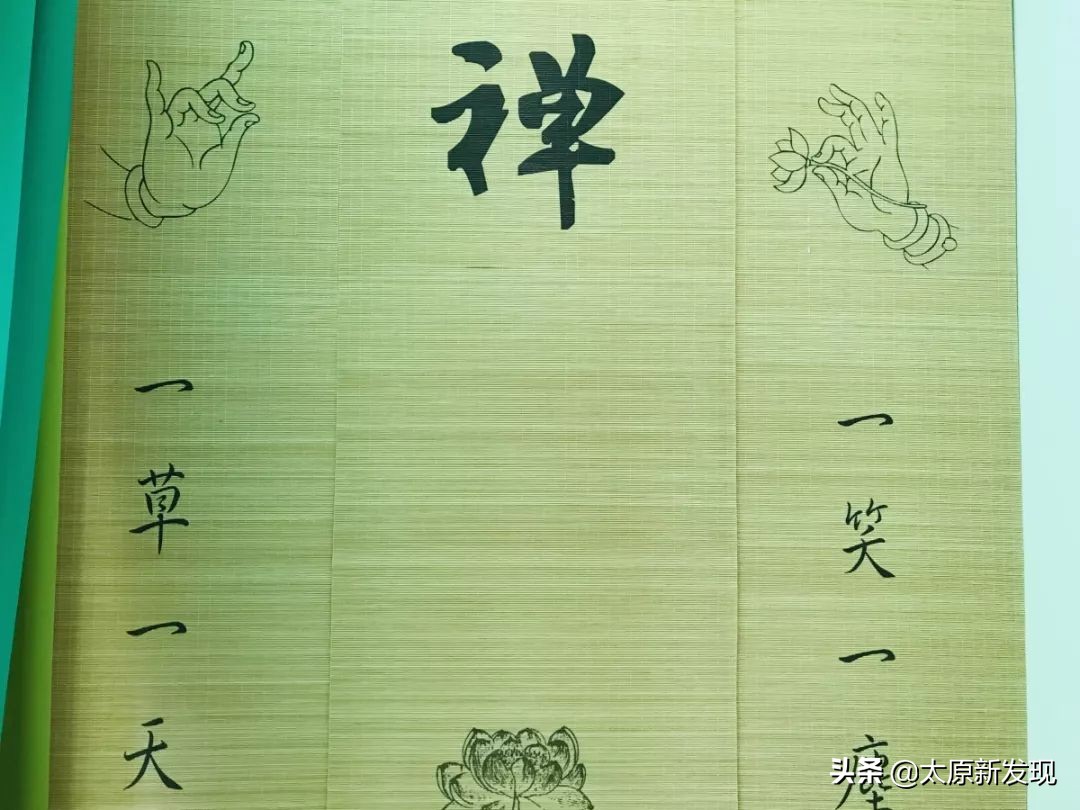 禅
一笑一塵
一草一天
头条 @太原新发现